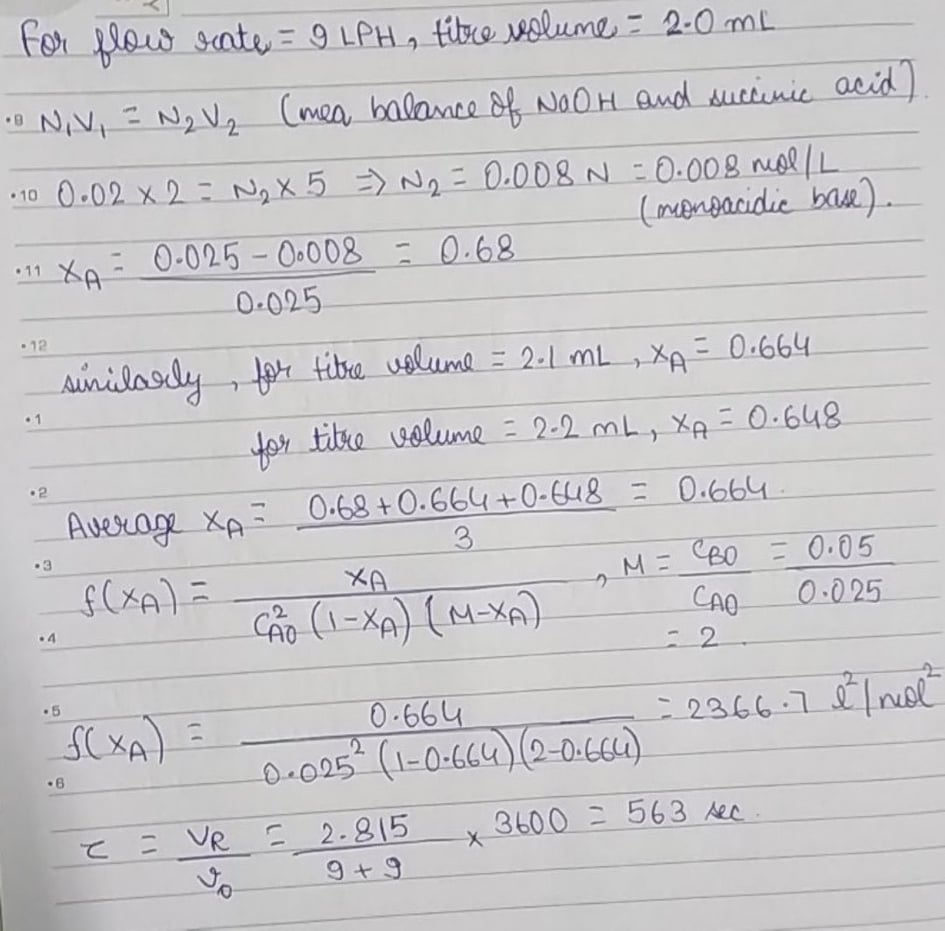 For flow rate = 9 LPH, titre volume = 2.0 mL
.9 N₁V₁ = N₂V₂ (meq balance of NaOH and succinic acid)
.10 0.02 × 2 = N₂ × 5 ⇒ N₂ = 0.008 N = 0.008 mol/L
(monoacidic base).
.11 X_A = (0.025 - 0.008)/0.025 = 0.68
.12
similarly, for titre volume = 2.1 mL, X_A = 0.664
.1
for titre volume = 2.2 mL, X_A = 0.648
.2
Average X_A = (0.68 + 0.664 + 0.648)/3 = 0.664.
.3
f(X_A) = X_A/(C_A0² (1-X_A) (M-X_A)), M = C_B0/C_A0 = 0.05/0.025
.4
= 2.
.5
f(X_A) = 0.664/(0.025² (1-0.664)(2-0.664)) = 2366.7 l²/mol²
.6
τ = V_R/v₀ = 2.815/(9+9) × 3600 = 563 sec.